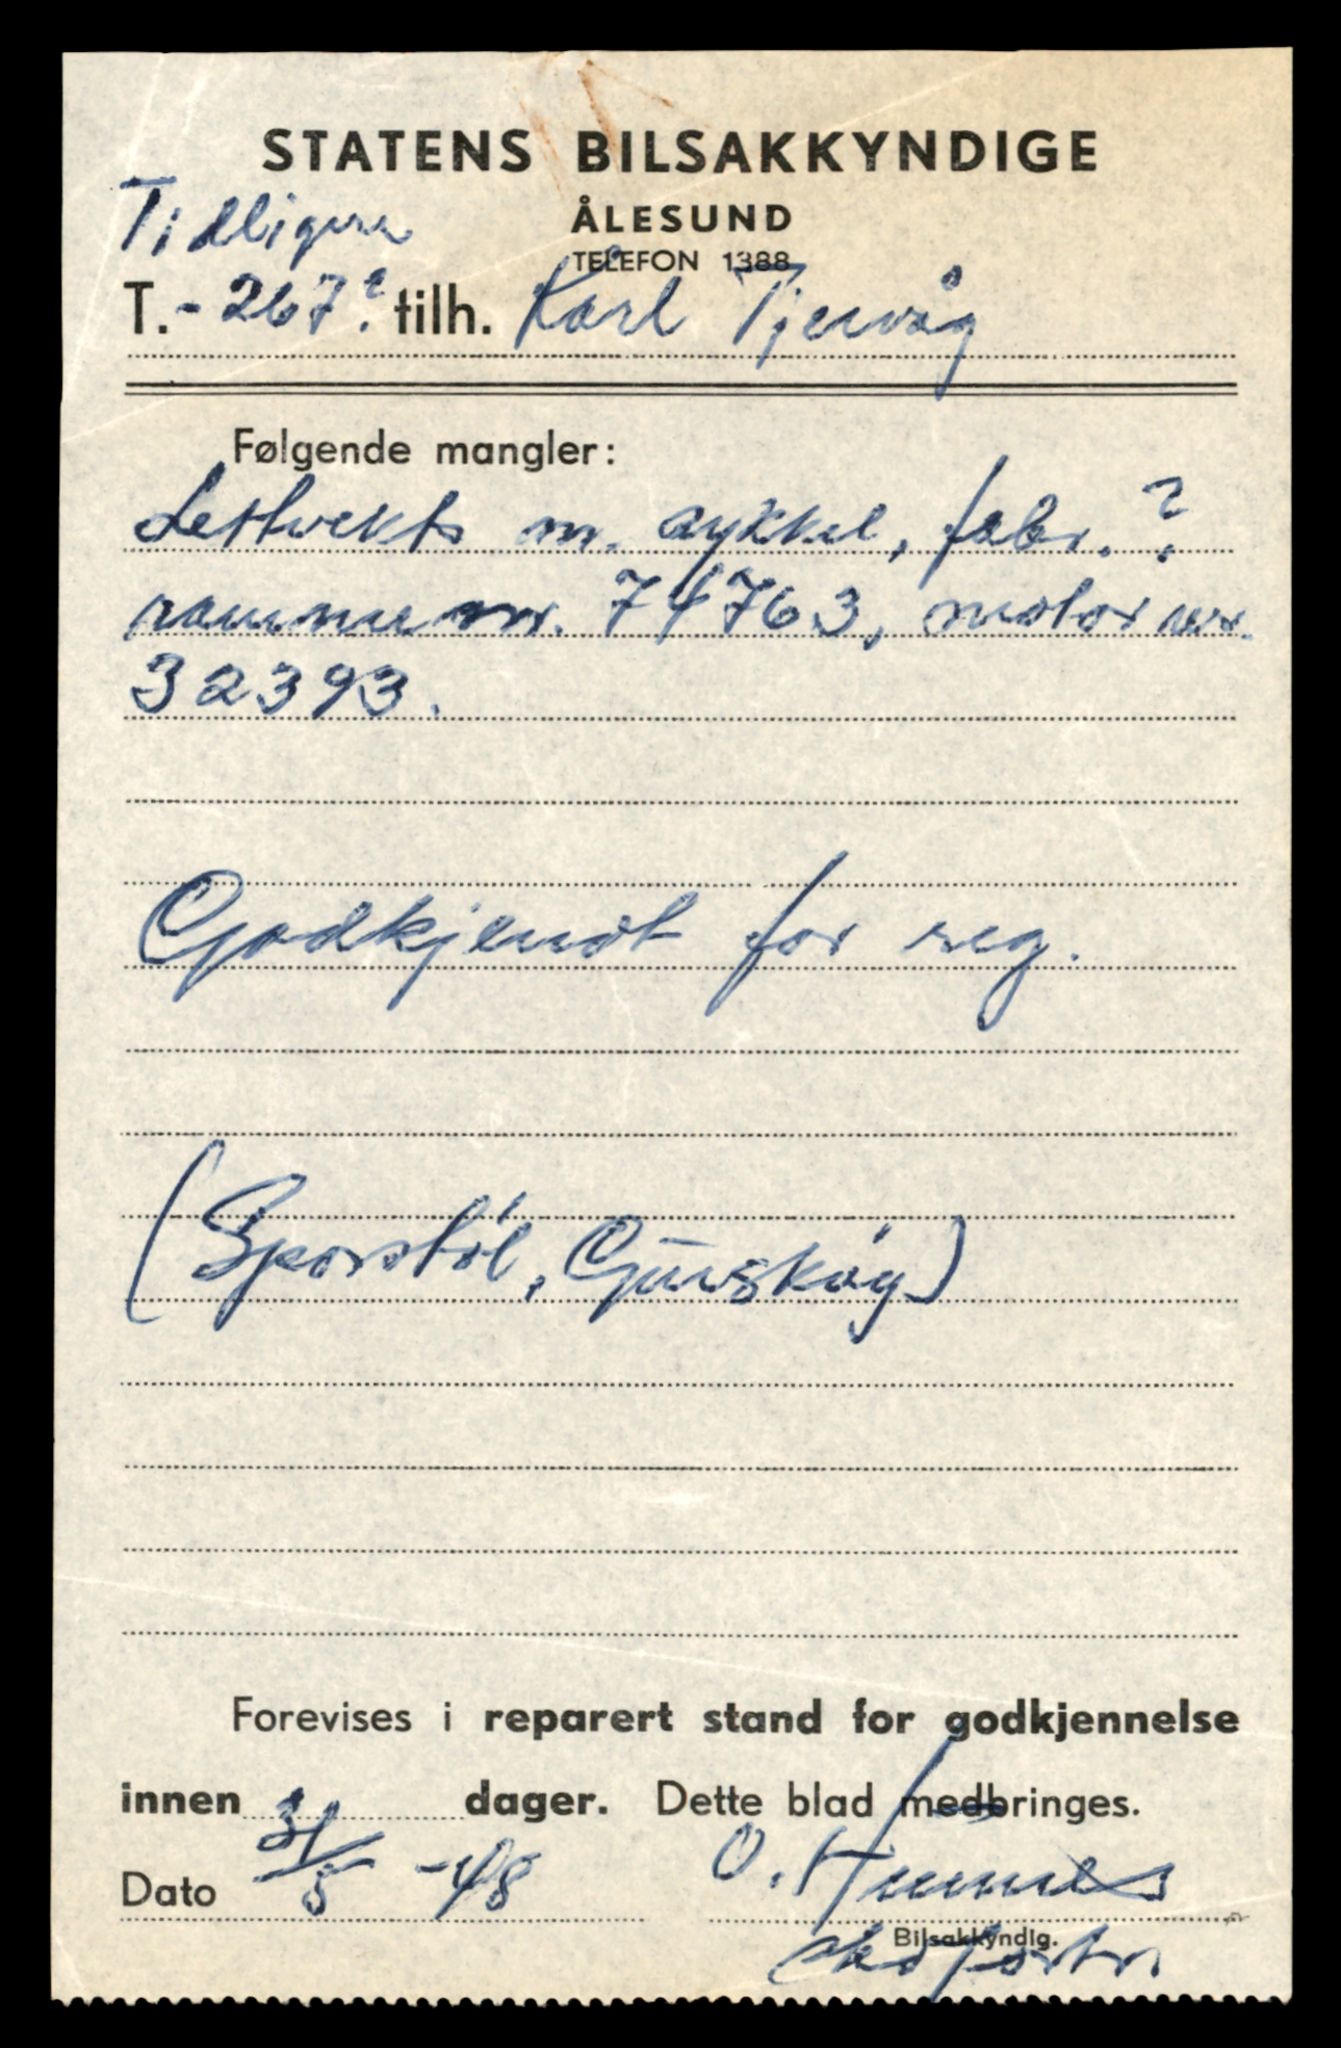 STATENS BILSAKKYNDIGE
ÅLESUND
TELEFON 1388
Tidligere
T. - 267? tilh. Kårl Tjervåg
Følgende mangler:
Lettvekts m. sykkel, fabr. ?
ramme nr. 74763, motor nr.
32393.
Godkjendt for reg.
(Sporstøl, Gurskøy)
Forevises i reparert stand for godkjennelse
innen dager. Dette blad medbringes.
Dato 31/5 -48
O.
Bilsakkyndig.